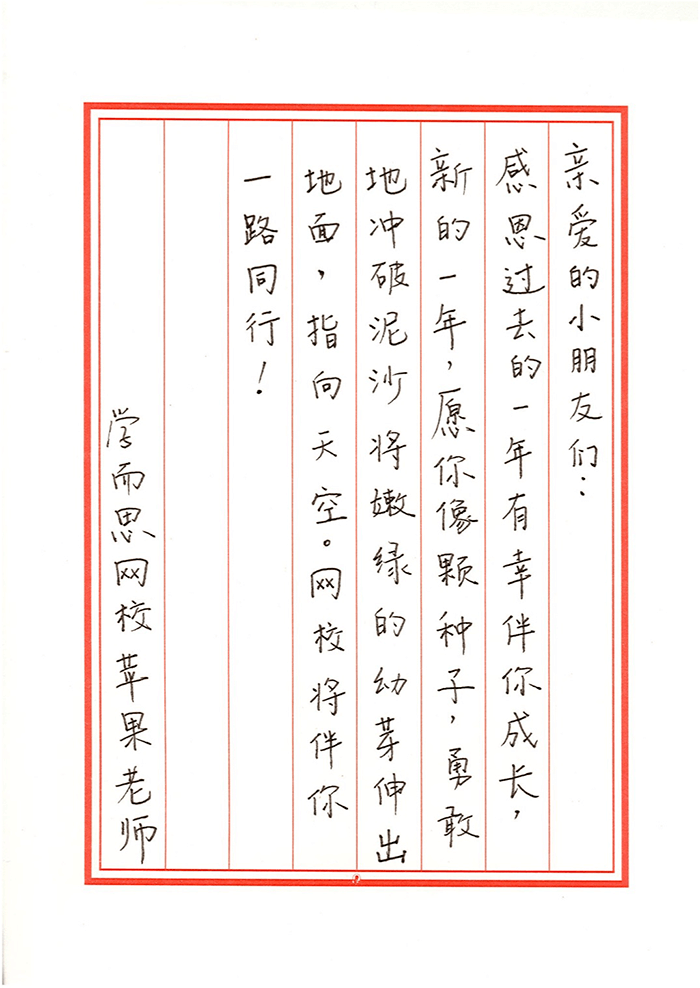 亲爱的小朋友们：
感恩过去的一年有幸伴你成长，
新的一年，愿你像颗种子，勇敢
地冲破泥沙将嫩绿的幼芽伸出
地面，指向天空。网校将伴你
一路同行！
学而思网校苹果老师